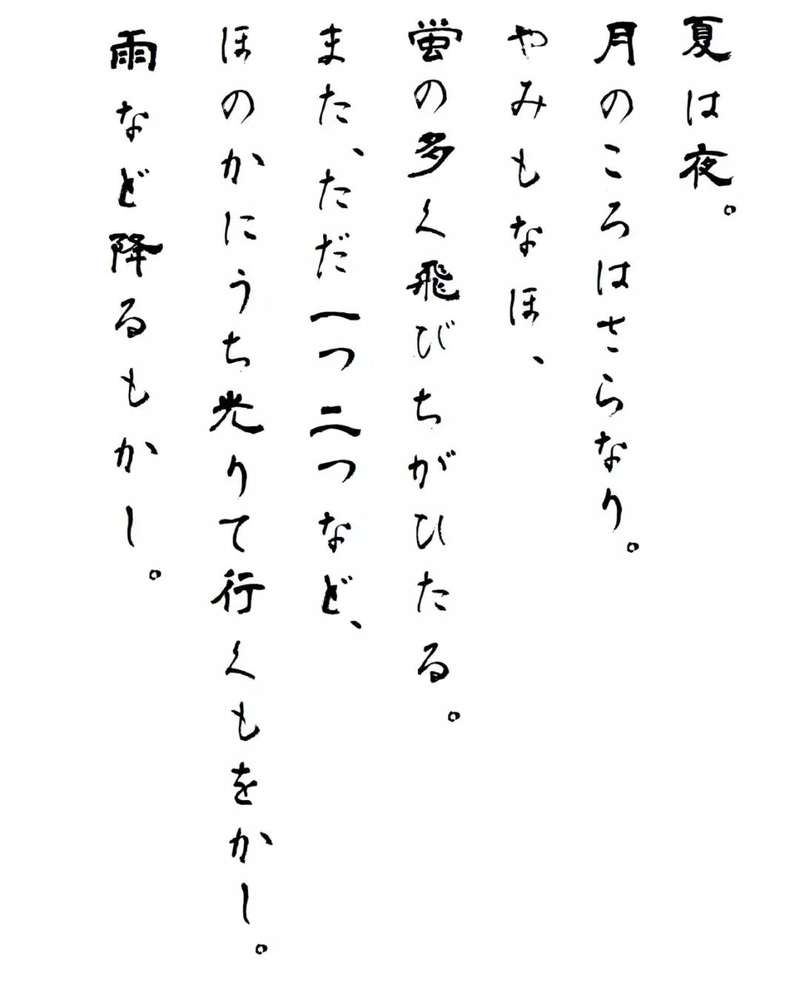 夏は夜。
月のころはさらなり。
やみもなほ、
蛍の多く飛びちがひたる。
また、ただ一つ二つなど、
ほのかにうち光りて行くもをかし。
雨など降るもかし。